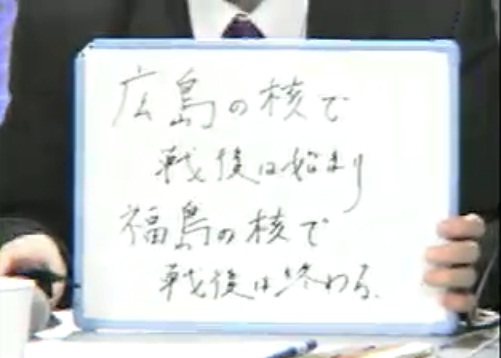 広島の核で
戦後は始まり
福島の核で
戦後は終わる.